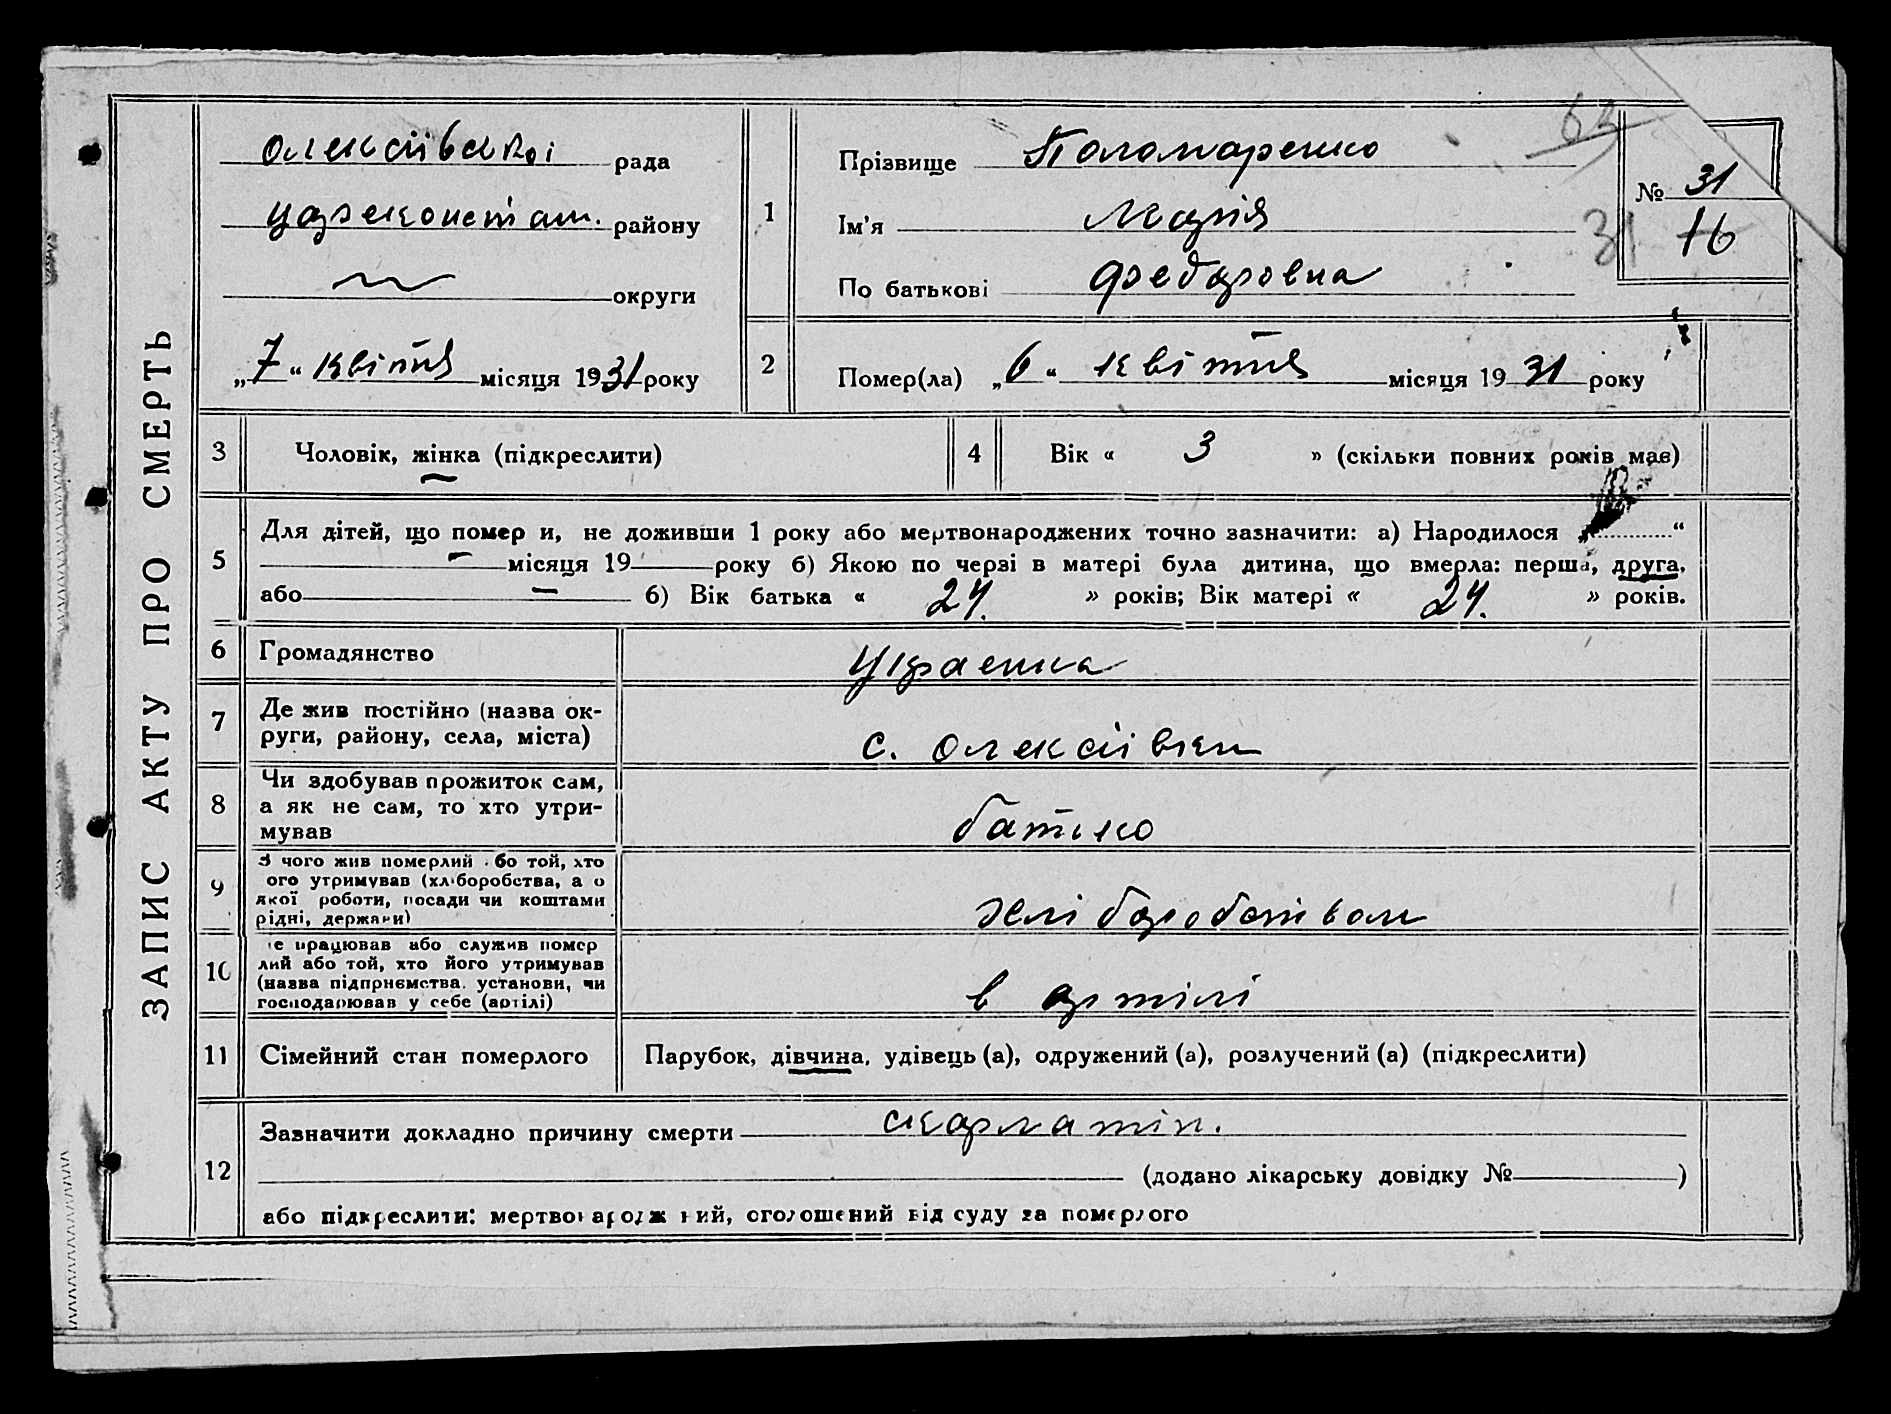 ЗАПИС АКТУ ПРО СМЕРТЬ
Олексіївскоі рада
району
округи
„7“ квітня місяця 1931 року
1
Прізвище Пономаренко
Ім'я Марія
По батькові Федоровна
63
№ 31
31 16
2
Помер(ла) „6“ квітня місяця 1931 року
3 Чоловік, жінка (підкреслити)
4 Вік « 3 » (скільки повних років має)
5
Для дітей, що помер и, не доживши 1 року або мертвонароджених точно зазначити: а) Народилося „ “
— місяця 19 року б) Якою по черзі в матері була дитина, що вмерла: перша, друга,
або — б) Вік батька « 24. » років; Вік матері « 24. » років.
6 Громадянство Украенка
7 Де жив постійно (назва ок-
руги, району, села, міста) с. Олексіівки
8 Чи здобував прожиток сам,
а як не сам, то хто утри-
мував батько
9 З чого жив померлий бо той, хто
ого утримував (хліборобства, а о
якої роботи, посади чи коштами
рідні, держави) хліборобством
10 е працював або служив помер
лий або той, хто його утримував
(назва підприємства, установи, чи
господарював у себе (артілі) в артілі
11 Сімейний стан померлого Парубок, дівчина, удівець (а), одружений (а), розлучений (а) (підкреслити)
12
Зазначити докладно причину смерти скарлатін.
(додано лікарську довідку № )
або підкреслити: мертвонароджений, оголошений від суду за померлого